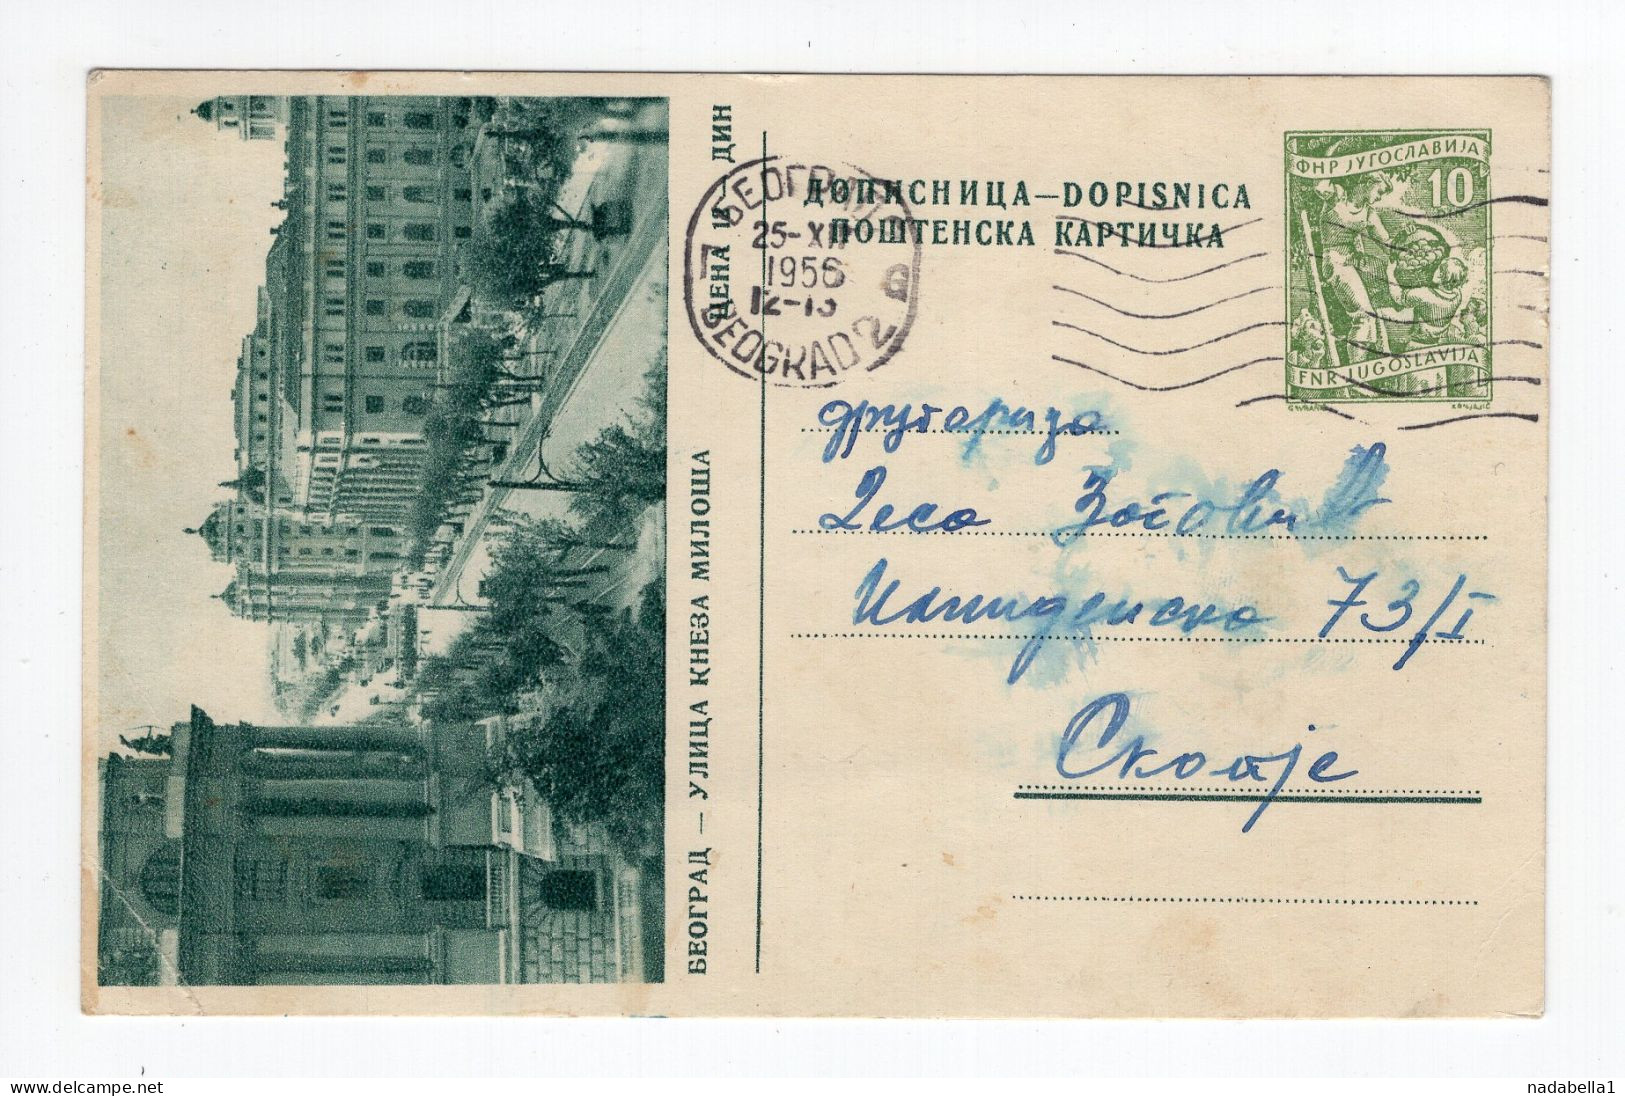 БЕОГРАД — УЛИЦА КНЕЗА МИЛОША
ЦЕНА 12 ДИН
БЕОГРАД 2
25-XII
1956
12-13
BEOGRAD 2
ДОПИСНИЦА—DOPISNICA
ПОШТЕНСКА КАРТИЧКА
ФНР ЈУГОСЛАВИЈА
10
FNR JUGOSLAVIJA
другарица
Деса Зоговић
Илинденска 73/I
Скопје
nadabella1